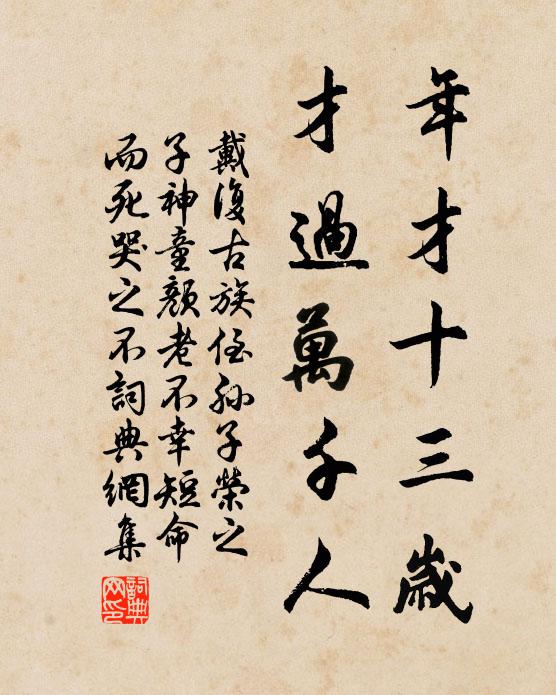 年才十三歲
才過萬千人
戴復古族侄孫子榮之
子神童顏老不幸短命
而死哭之不詞典網集
詞典網印